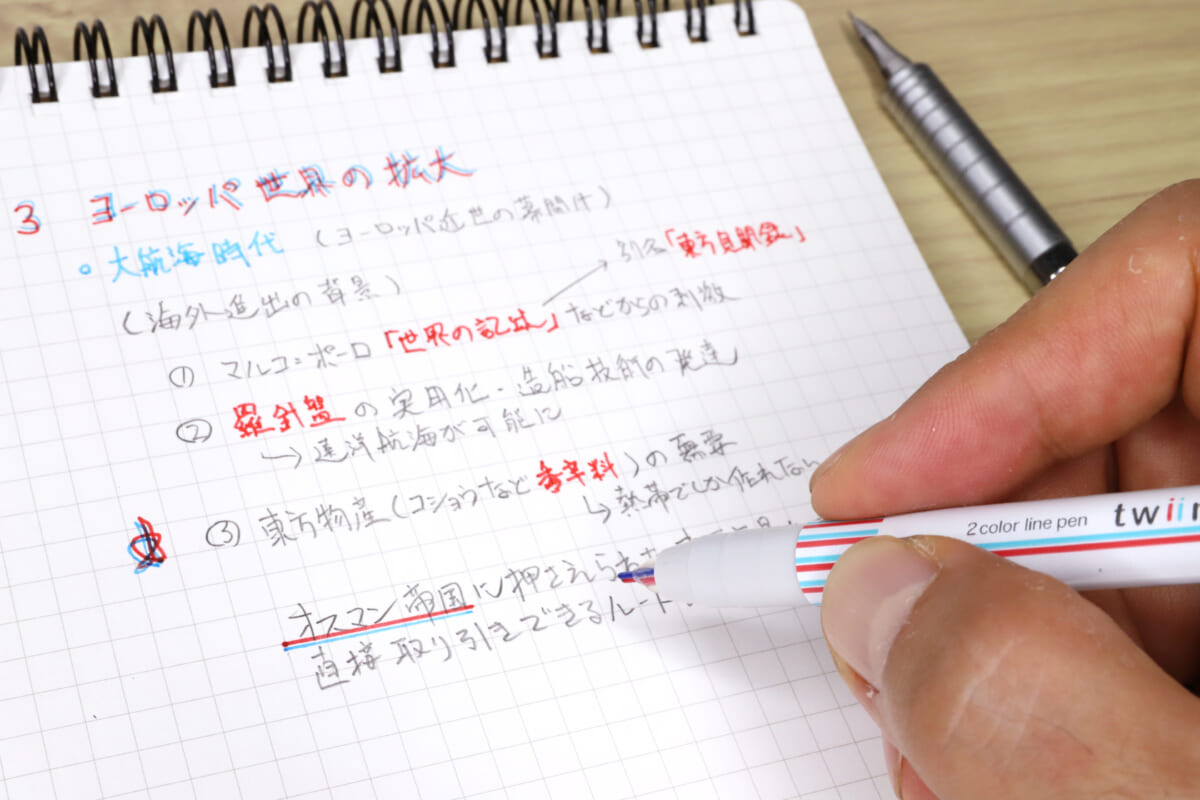 3 ヨーロッパ世界の拡大
○ 大航海時代 (ヨーロッパ近世の幕開け)
(海外進出の背景)
別名「東方見聞録」
① マルコ=ポーロ「世界の記述」などからの刺激
② 羅針盤の実用化・造船技術の発達
↳ 遠洋航海が可能に
③ 東方物産(コショウなど香辛料)の需要
↳ 熱帯でしか作れない
オスマン帝国に押さえられ
直接取り引きできるルート
2color line pen twiin